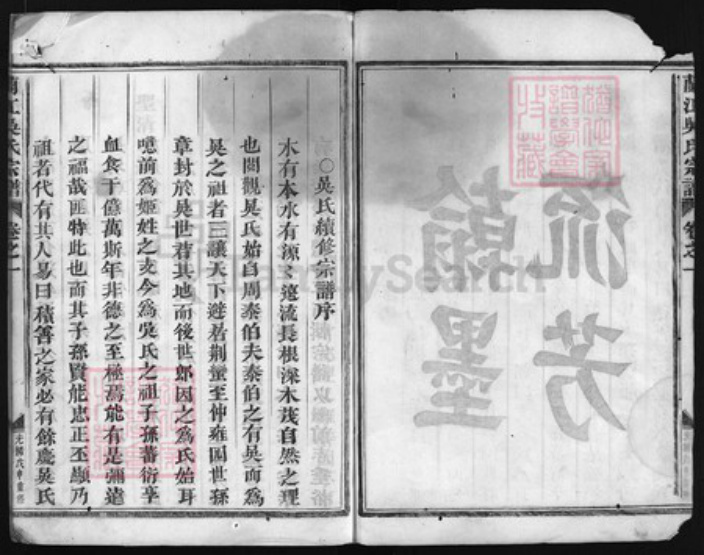 蘭江吳氏宗譜
卷之一
流芳
翰墨
譜學會
收藏
FamilySearch
〇吳氏續修宗譜序
木有本水有源源遠流長根深木茂自然之理
也閱觀吳氏始自周泰伯夫泰伯之有吳而為
吳之祖者三讓天下避若荆蠻至仲雍國世孫
章封於吳世君其地而後世卽因之為氏始耳
噫前為姬姓之支今為吳氏之祖子孫蕃衍享
血食于億萬斯年非德之至極焉能有是彌遠
之福哉匪特此也而其子孫賢能忠正丕顯乃
祖者代有其人易曰積善之家必有餘慶吳氏
蘭江吳氏宗譜
卷之一